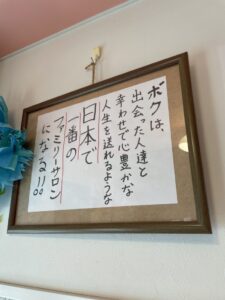 ボクは、
出会った人達と
幸わせで心豊かな
人生を送れるような
日本で
一番の
ファミリーサロン
になる!!。